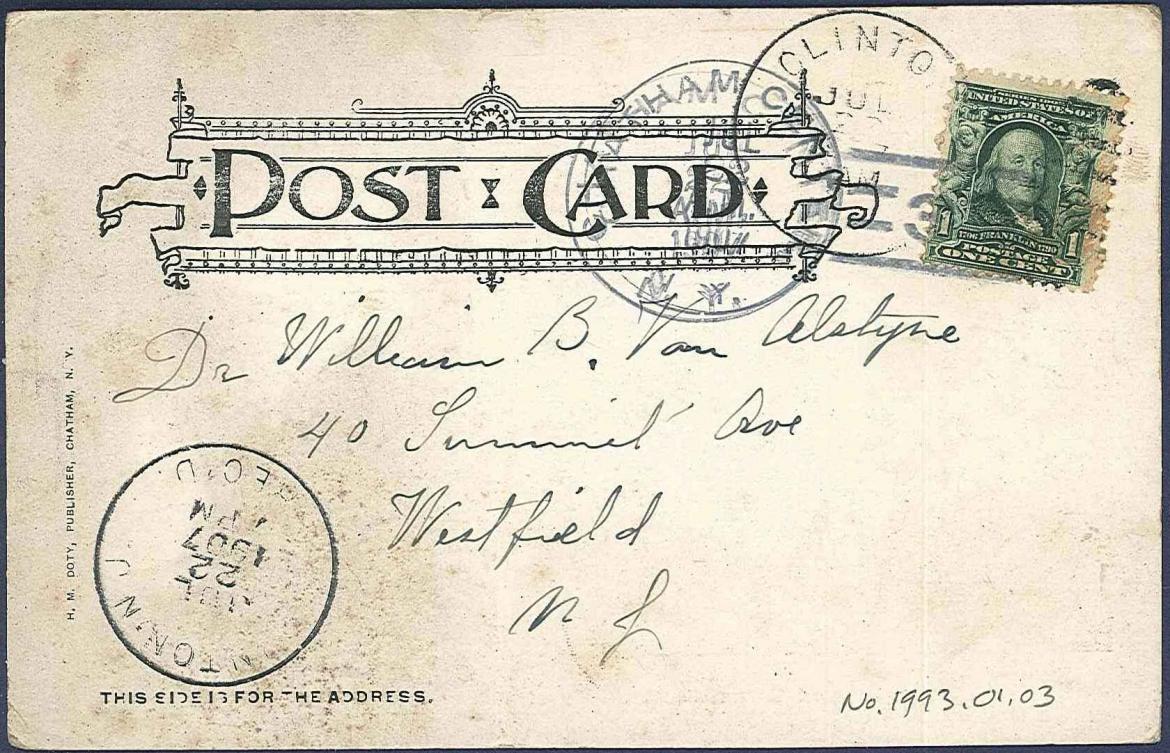 POST CARD
CHATHAM CENTER
JUL
22
A.M.
1907
N. Y.
CLINTO
JUL
AM
3
UNITED STATES OF
AMERICA
1706 FRANKLIN 1790
1 1
POSTAGE
ONE CENT
Dr William B. Van Alstyne
40 Summit Ave
Westfield
N J
H. M. DOTY, PUBLISHER, CHATHAM, N. Y.
NTON. N.J.
JUL
22
1907
7 PM
REC'D.
THIS SIDE IS FOR THE ADDRESS.
No. 1993.01.03